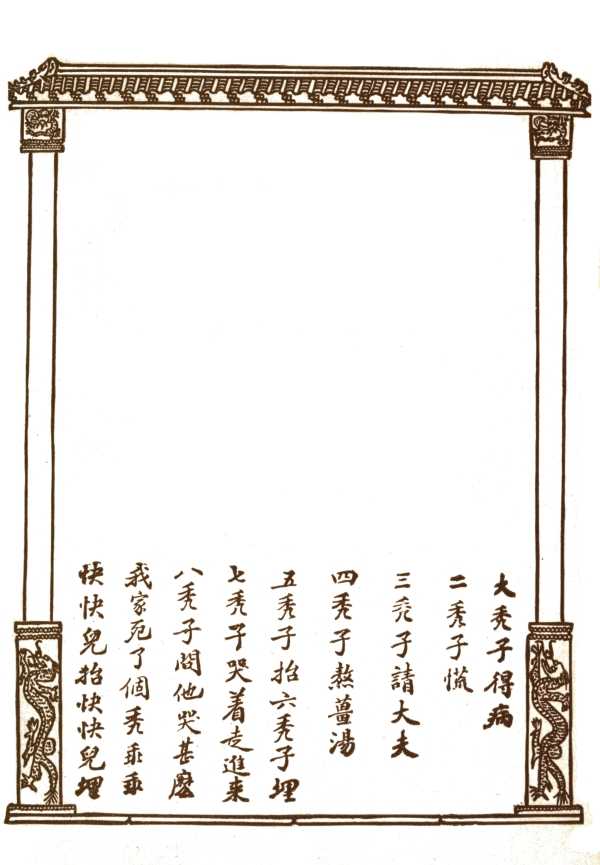 大秃子得病
二秃子慌
三秃子請大夫
四秃子熬薑湯
五秃子抬六秃子埋
七秃子哭着走進来
八秃子問他哭甚麽
我家死了個秃乖乖
快快兒抬快快兒埋